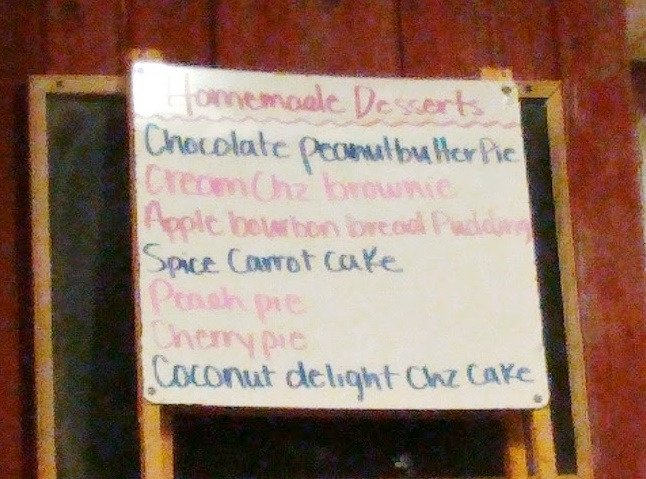 Homemade Desserts
Chocolate peanutbutter Pie
Cream Chz brownie
Apple bourbon bread Pudding
Spice Carrot cake
Peach pie
Cherry pie
Coconut delight Chz Cake